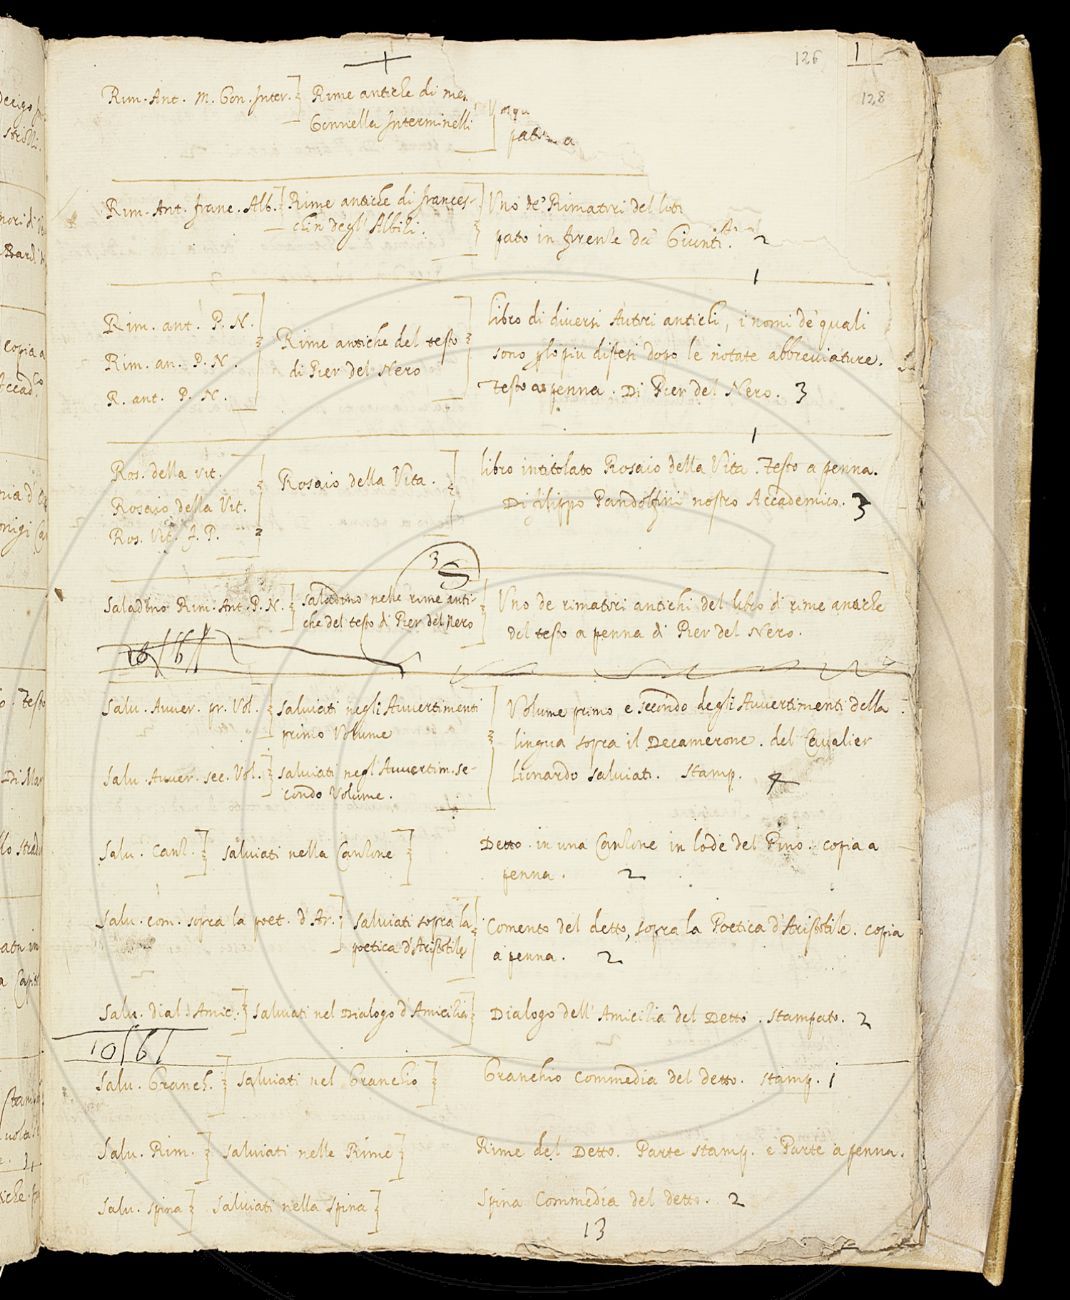 126
1
128
Rim. Ant. M. Gon. Inter. Rime antiche di
Gonnella Interminelli
Rim. Ant. franc. Alb. Rime antiche di frances-
chin degl'Albili. Uno de' Rimatori del
pato in firenze da' Giunti. 2
1
Rim. ant. P. N.
Rim. an. P. N.
R. ant. P. N.
Rime antiche del testo
di Pier del Nero
libro di diversi Autori antichi, i nomi de' quali
sono plo piu distesi dopo le notate abbreviature.
Testo a penna. Di Pier del Nero. 3
1
Ros. della vit.
Rosaio della Vit.
Ros. Vit. F. P.
Rosaio della Vita.
libro intitolato Rosaio della Vita. Testo a penna.
Di filippo Pandolfini nostro Accademico. 3
3
Saladino Rim. Ant. P. N. Saladino nelle rime anti-
che del testo di Pier del Nero
Uno de rimatori antichi del libro di rime antiche
del testo a penna di Pier del Nero.
Salu. Auuer. pr. Vol. Saluiati negli Auuertimenti
primo Volume
Salu. Auuer. sec. Vol. Saluiati negl'Auuertim. se-
condo Volume.
Volume primo, e secondo degli Auuertimenti della
lingua sopra il Decamerone. del Caualier
Lionardo Saluiati. Stamp. 4
Salu. Canz. Saluiati nella Canzone Detto. in una Canzone in lode del Pino. copia a
penna. 2
Salu. com. sopra la poet. d'Ar. Saluiati sopra la
poetica d'Aristotile
Comento del detto, sopra la Poetica d'Aristotile. copia
a penna. 2
Salu. dial d'Amic. Saluiati nel Dialogo d'Amicizia Dialogo dell'Amicizia del Detto. stampato. 2
10/6/
Salu. Granch. Saluiati nel Granchio Granchio Commedia del detto. stamp. 1
Salu. Rim. Saluiati nelle Rime Rime del Detto. Parte stamp. e Parte a penna.
Salu. spina Saluiati nella Spina Spina Commedia del detto. 2
13